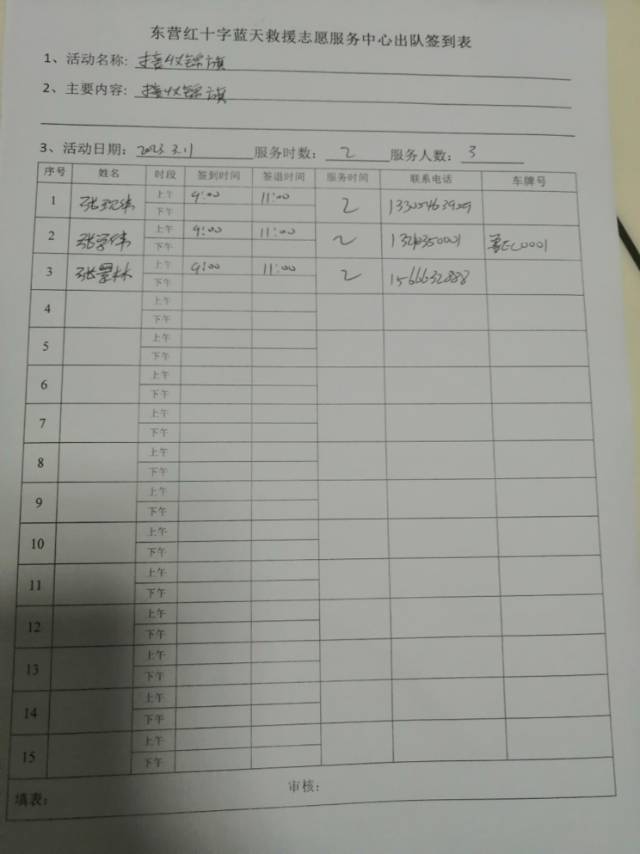 东营红十字蓝天救援志愿服务中心出队签到表
1、活动名称: 接收锦旗
2、主要内容: 接收锦旗
3、活动日期: 2023.3.11 服务时数: 2 服务人数: 3
序号 姓名 时段 签到时间 签退时间 服务时间 联系电话 车牌号
1 张 伟 上午 9:00 11:00 2
下午
2 张 伟 上午 9:00 11:00 2
下午
3 张景林 上午 9:00 11:00 2 15666632888
下午
4 上午
下午
5 上午
下午
6 上午
下午
7 上午
下午
8 上午
下午
9 上午
下午
10 上午
下午
11 上午
下午
12 上午
下午
13 上午
下午
14 上午
下午
15 上午
下午
填表: 审核: